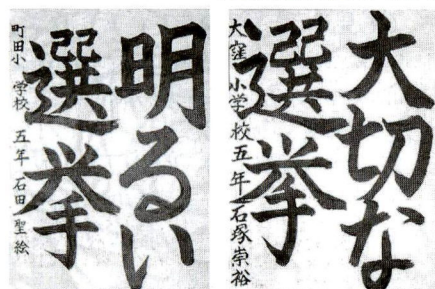 明るい
選挙
町田小学校 五年 石田聖絵
大切な
選挙
大窪小学校五年 石塚崇裕